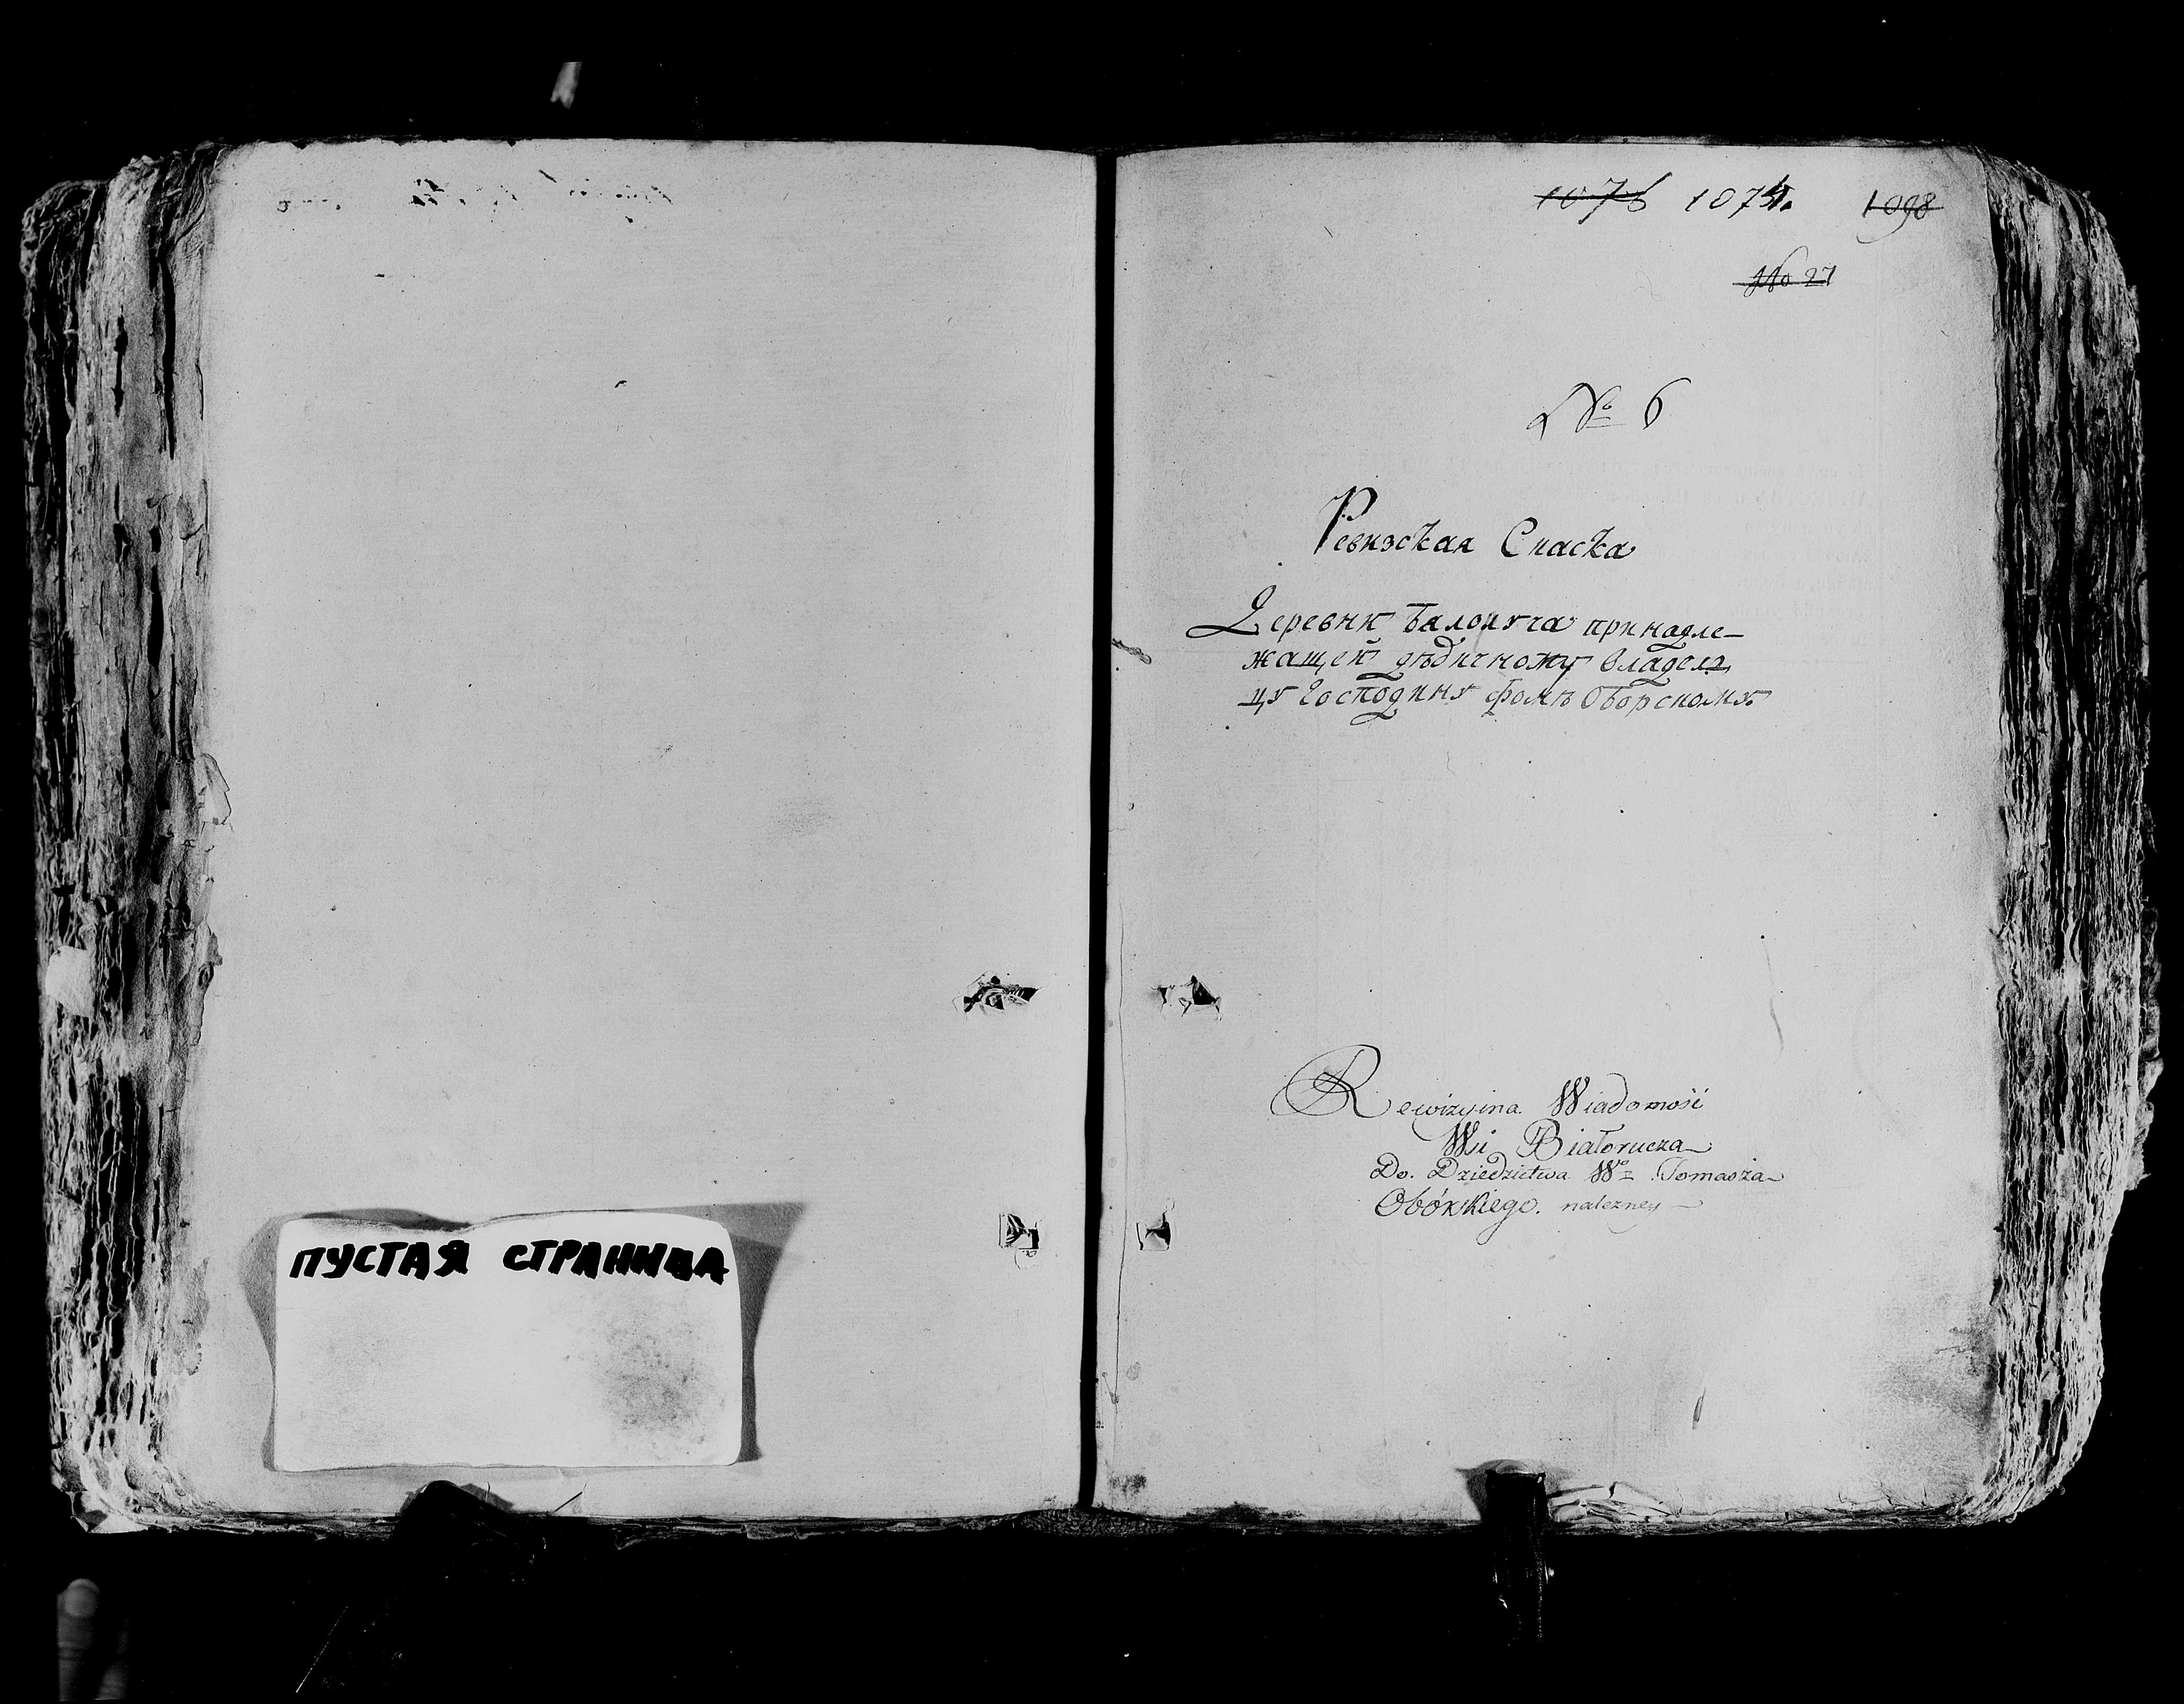 ПУСТАЯ СТРАНИЦА
1098
No 27
№ 6
Ревизская Скаска
Деревни Балоруча принадле-
жащей дѣдичному владел
цу Господину Фомѣ Оборскому.
Rewizyina Wiadomość
Wsi Białorucza
Do Dziedzictwa Wo Tomasza
Obórskiego. należney